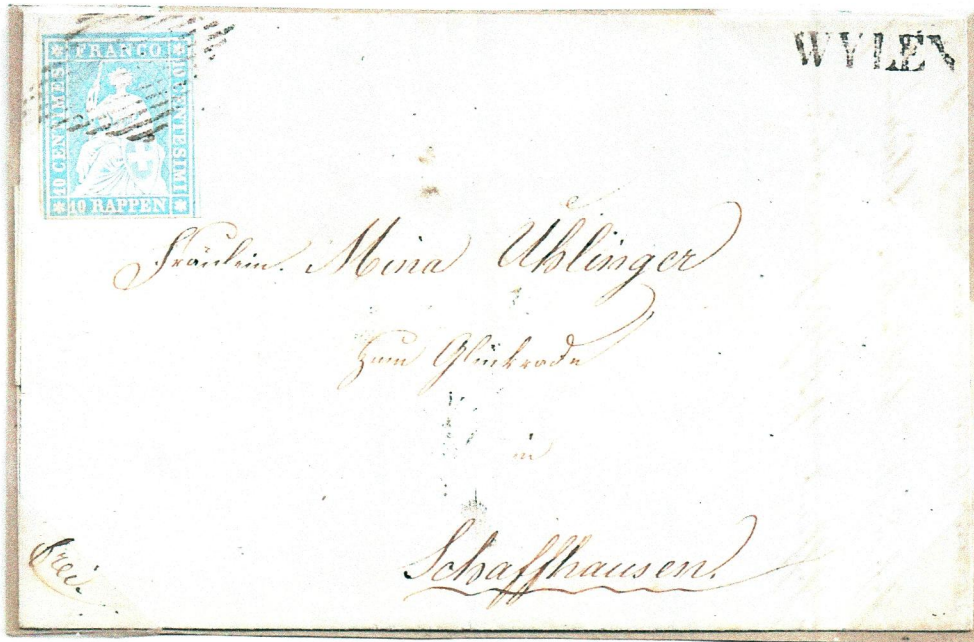 FRANCO
10 CENTIMES
10 CENTESIMI
10 RAPPEN
WYLEN
Fräulein. Mina Uhlinger
zum Glücksrade
in
Schaffhausen.
frei.